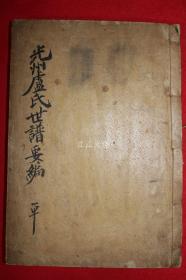 光州盧氏世譜要編
單